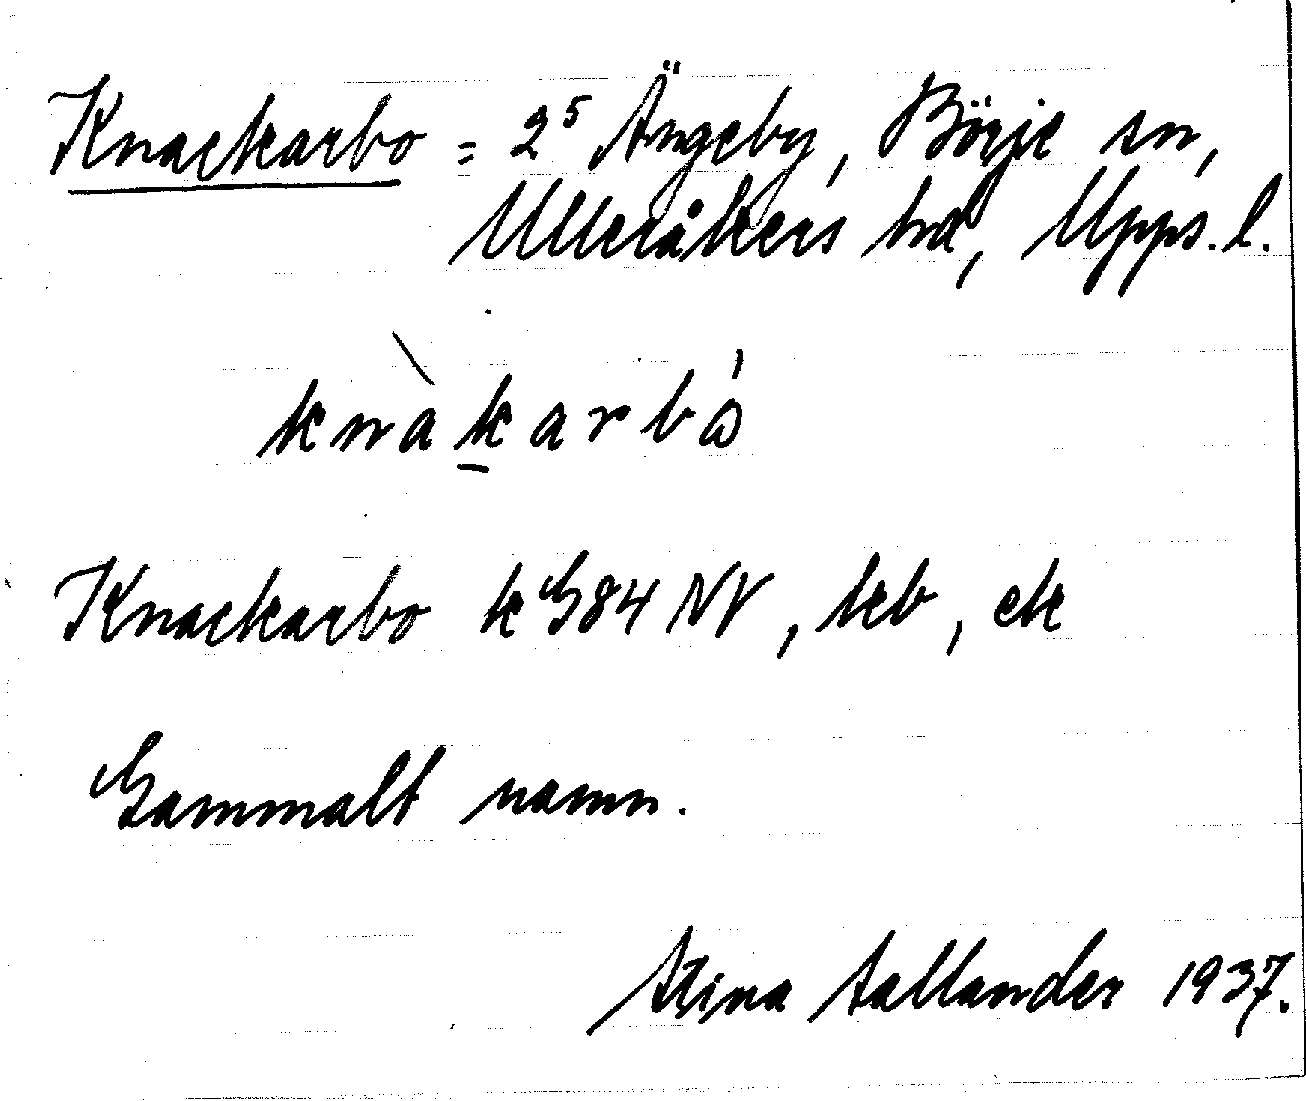 Knackarbo = 2⁵ Ängeby, Börje sn,
Ulleråkers hd, Upps. l.
knàkarbó
Knackarbo k G84 NV, heb, ek
Gammalt namn.
Stina Sallander 1937.